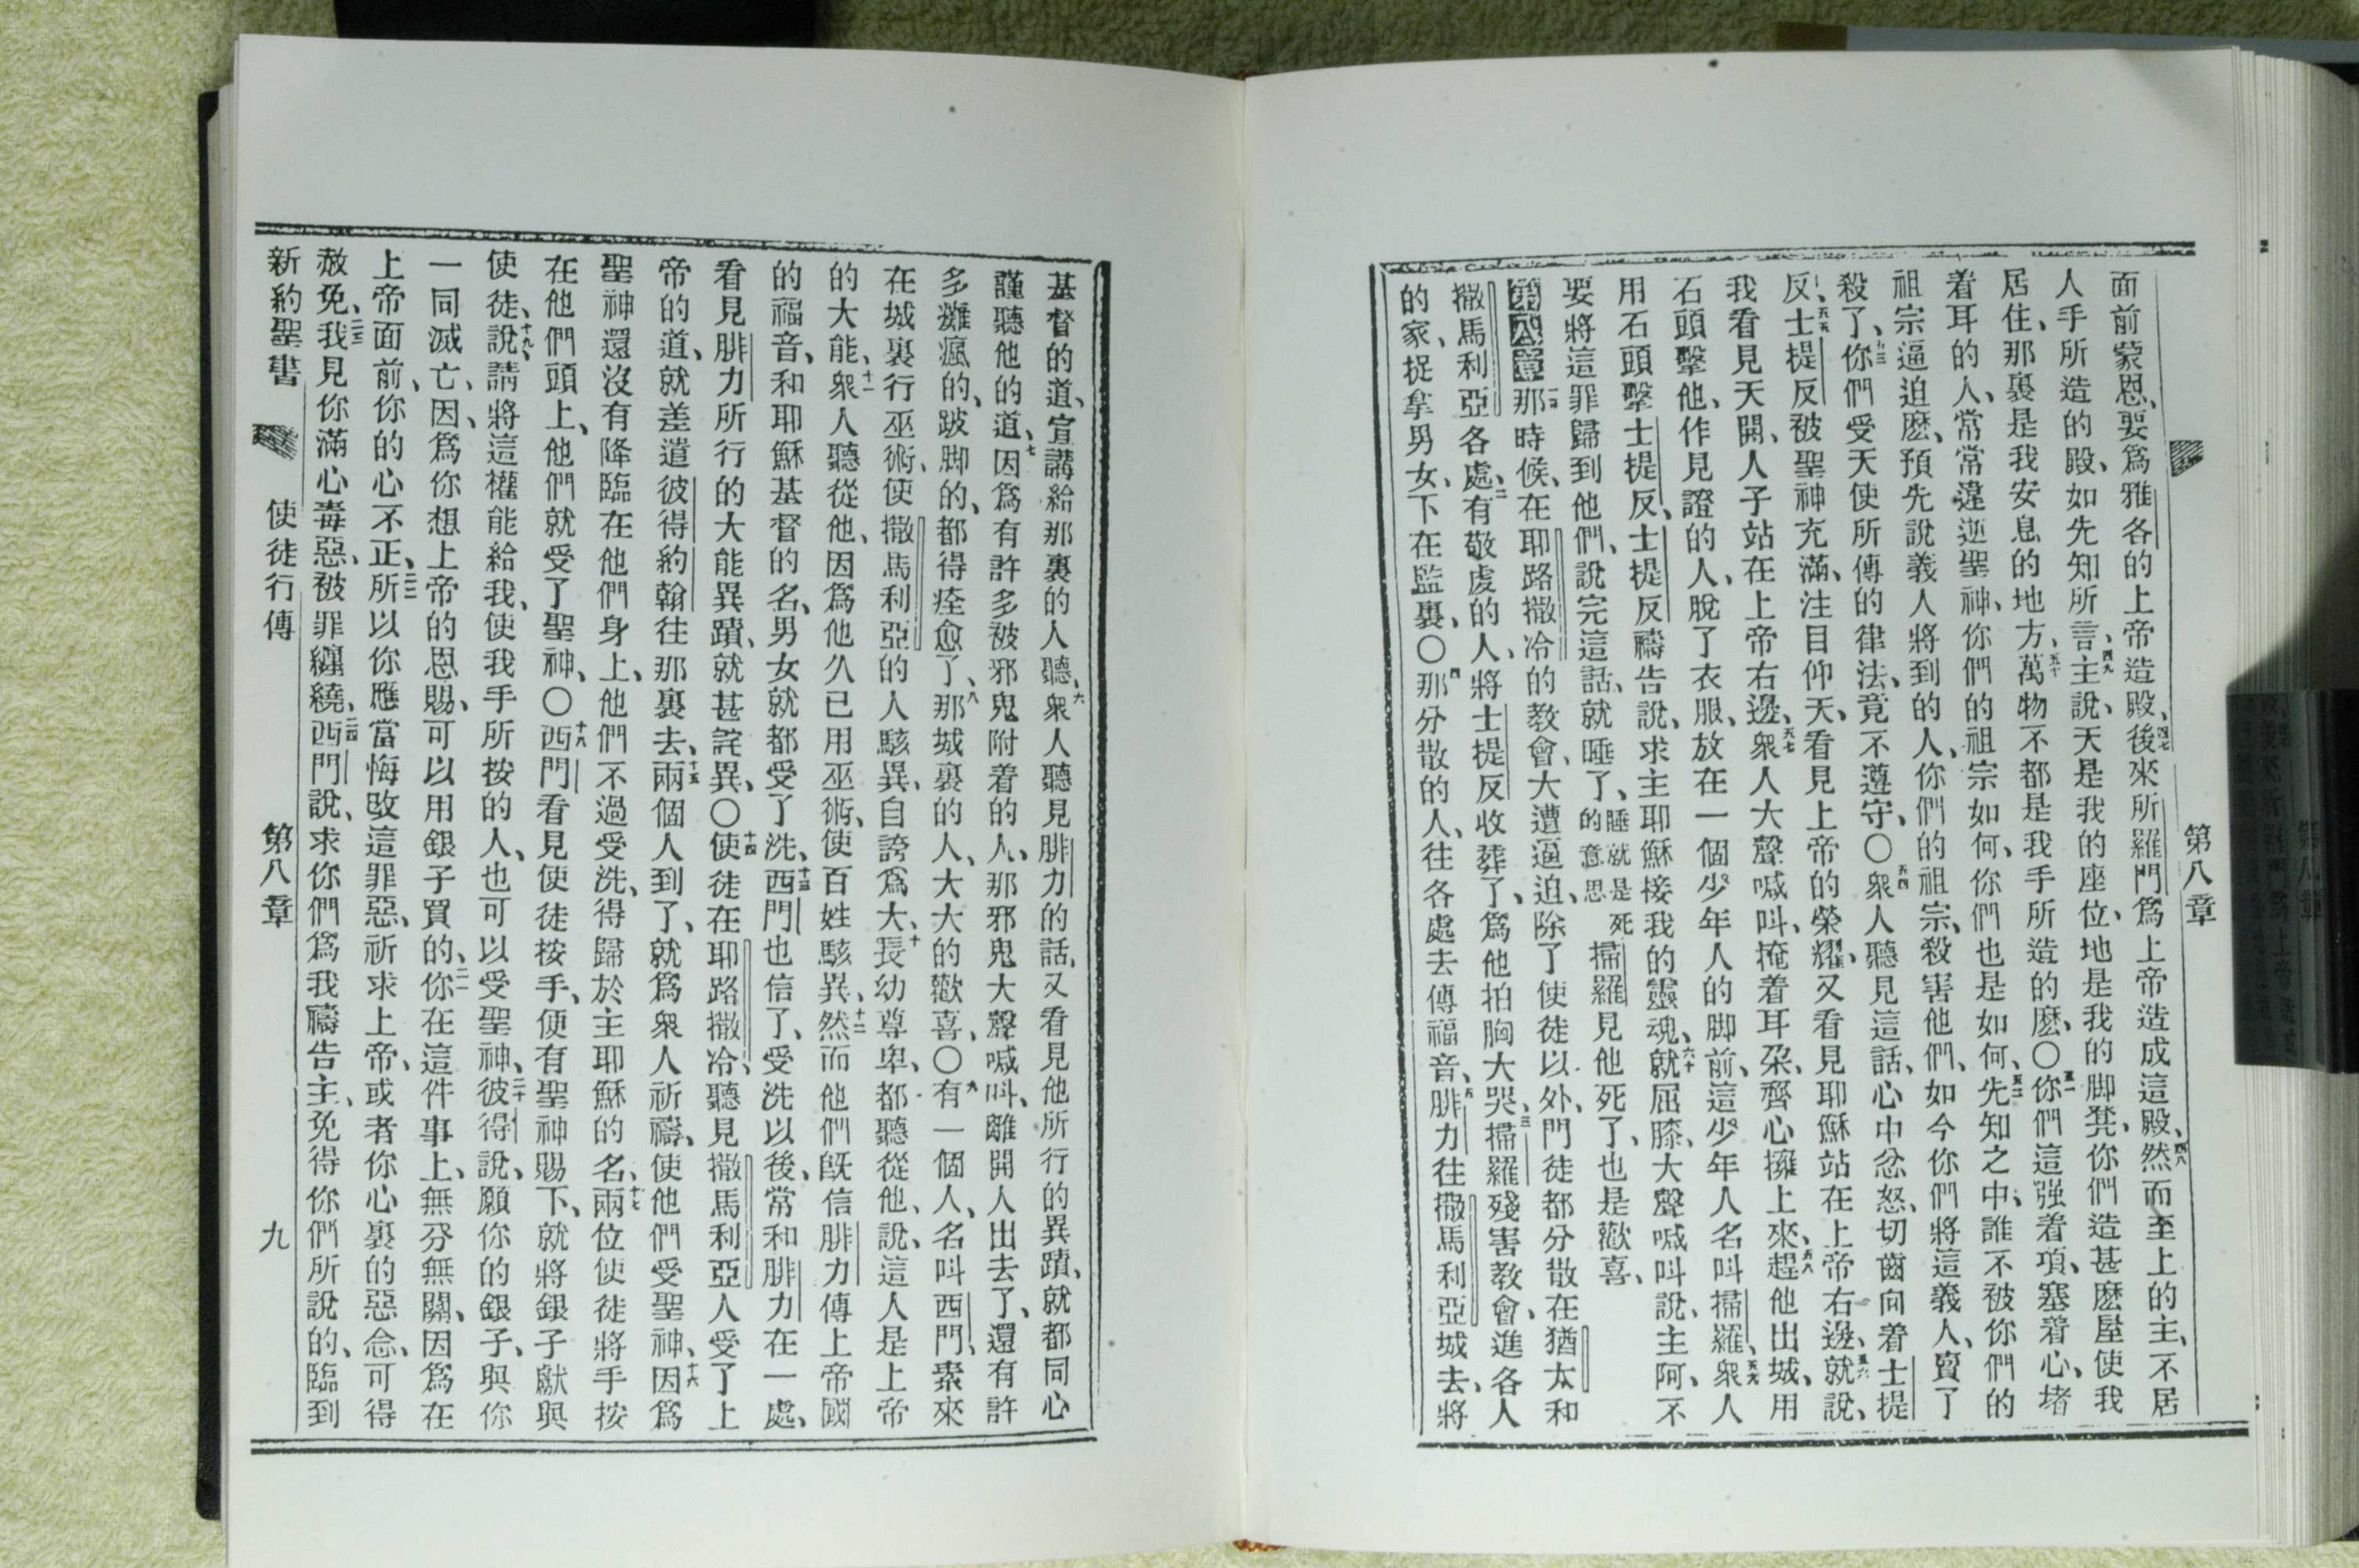 第八章
面前蒙恩、要爲雅各的上帝造殿、四七後來所羅門爲上帝造成這殿、四八然而至上的主、不居
人手所造的殿、如先知所言、四九主說、天是我的座位、地是我的脚凳、你們造甚麽屋使我
居住、那裏是我安息的地方、五十萬物不都是我手所造的麽、〇五一你們這强着項、塞着心、堵
着耳的人、常常違逆聖神、你們的祖宗如何、你們也是如何、五二先知之中、誰不被你們的
祖宗逼迫麽、預先說義人將到的人、你們的祖宗、殺害他們、如今你們將這義人、賣了
殺了、五三你們受天使所傳的律法、竟不遵守、〇五四衆人聽見這話、心中忿怒、切齒向着士提
反、五五士提反被聖神充滿、注目仰天、看見上帝的榮耀、又看見耶穌站在上帝右邊、五六就說、
我看見天開、人子站在上帝右邊、五七衆人大聲喊叫、掩着耳朶、齊心擁上來、五八趕他出城、用
石頭擊他、作見證的人、脫了衣服、放在一個少年人的脚前、這少年人名叫掃羅、五九衆人
用石頭擊士提反、士提反禱告說、求主耶穌接我的靈魂、六十就屈膝、大聲喊叫說、主阿、不
要將這罪歸到他們、說完這話、就睡了、睡就是死的意思掃羅見他死了、也是歡喜、
第八章一那時候、在耶路撒冷的教會、大遭逼迫、除了使徒以外、門徒都分散在猶太和
撒馬利亞各處、二有敬虔的人、將士提反收葬了、爲他拍胸大哭、三掃羅殘害教會、進各人
的家、捉拿男女、下在監裏、〇四那分散的人、往各處去傳福音、五腓力往撒馬利亞城去、將
基督的道、宣講給那裏的人聽、六衆人聽見腓力的話、又看見他所行的異蹟、就都同心
謹聽他的道、七因爲有許多被邪鬼附着的人、那邪鬼大聲喊叫、離開人出去了、還有許
多癱瘋的、跛脚的、都得痊愈了、八那城裏的人、大大的歡喜、〇九有一個人、名叫西門、素來
在城裏行巫術、使撒馬利亞的人駭異、自誇爲大、十長幼尊卑、都聽從他、說、這人是上帝
的大能、十一衆人聽從他、因爲他久已用巫術、使百姓駭異、十二然而他們旣信腓力傳上帝國
的福音、和耶穌基督的名、男女就都受了洗、十三西門也信了、受洗以後、常和腓力在一處、
看見腓力所行的大能異蹟、就甚詫異、〇十四使徒在耶路撒冷、聽見撒馬利亞人受了上
帝的道、就差遣彼得約翰往那裏去、十五兩個人到了、就爲衆人祈禱、使他們受聖神、十六因爲
聖神還沒有降臨在他們身上、他們不過受洗、得歸於主耶穌的名、十七兩位使徒將手按
在他們頭上、他們就受了聖神、〇十八西門看見使徒按手、便有聖神賜下、就將銀子獻與
使徒、十九說、請將這權能給我、使我手所按的人、也可以受聖神、二十彼得說、願你的銀子、與你
一同滅亡、因爲你想上帝的恩賜、可以用銀子買的、二一你在這件事上、無分無關、因爲在
上帝面前、你的心不正、二二所以你應當悔改這罪惡、祈求上帝、或者你心裏的惡念、可得
赦免、二三我見你滿心毒惡、被罪纏繞、二四西門說、求你們爲我禱告主、免得你們所說的、臨到
新約聖書　使徒行傳　第八章　九